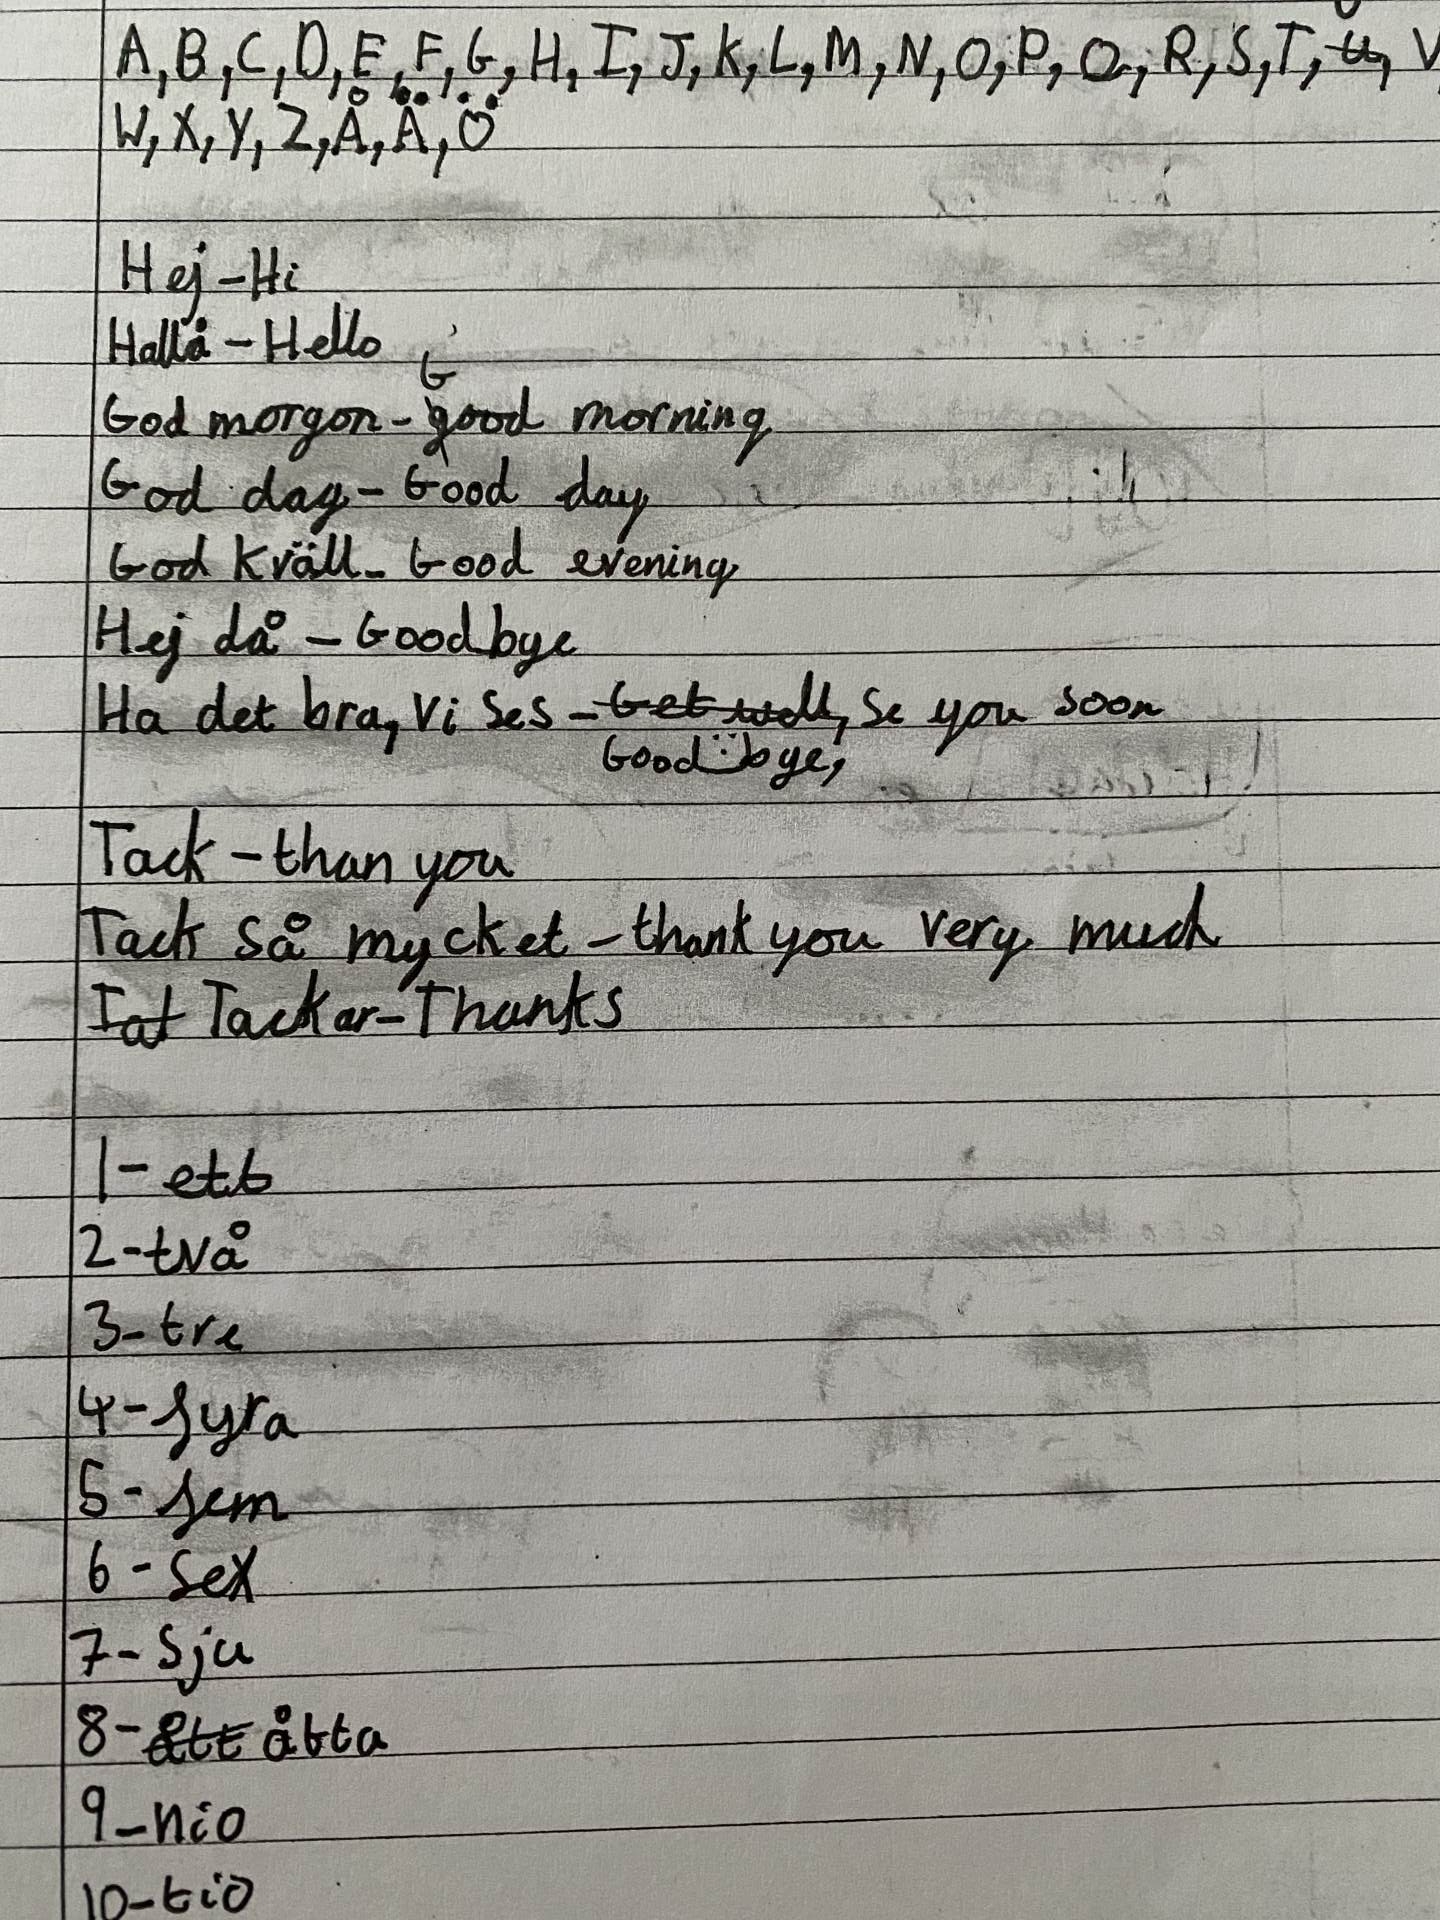 A, B, C, D, E, F, G, H, I, J, K, L, M, N, O, P, Q, R, S, T, U, V,
W, X, Y, Z, Å, Ä, Ö
Hej - Hi
Hallå - Hello
God morgon - Good morning
God dag - Good day
God Kväll - Good evening
Hej då - Goodbye
Ha det bra, Vi Ses - Get well, Se you soon
Good bye,
Tack - than you
Tack Så mycket - thank you very much
Tat Tackar - Thanks
1 - ett
2 - två
3 - tre
4 - fyra
5 - fem
6 - sex
7 - Sju
8 - ått åtta
9 - nio
10 - tio